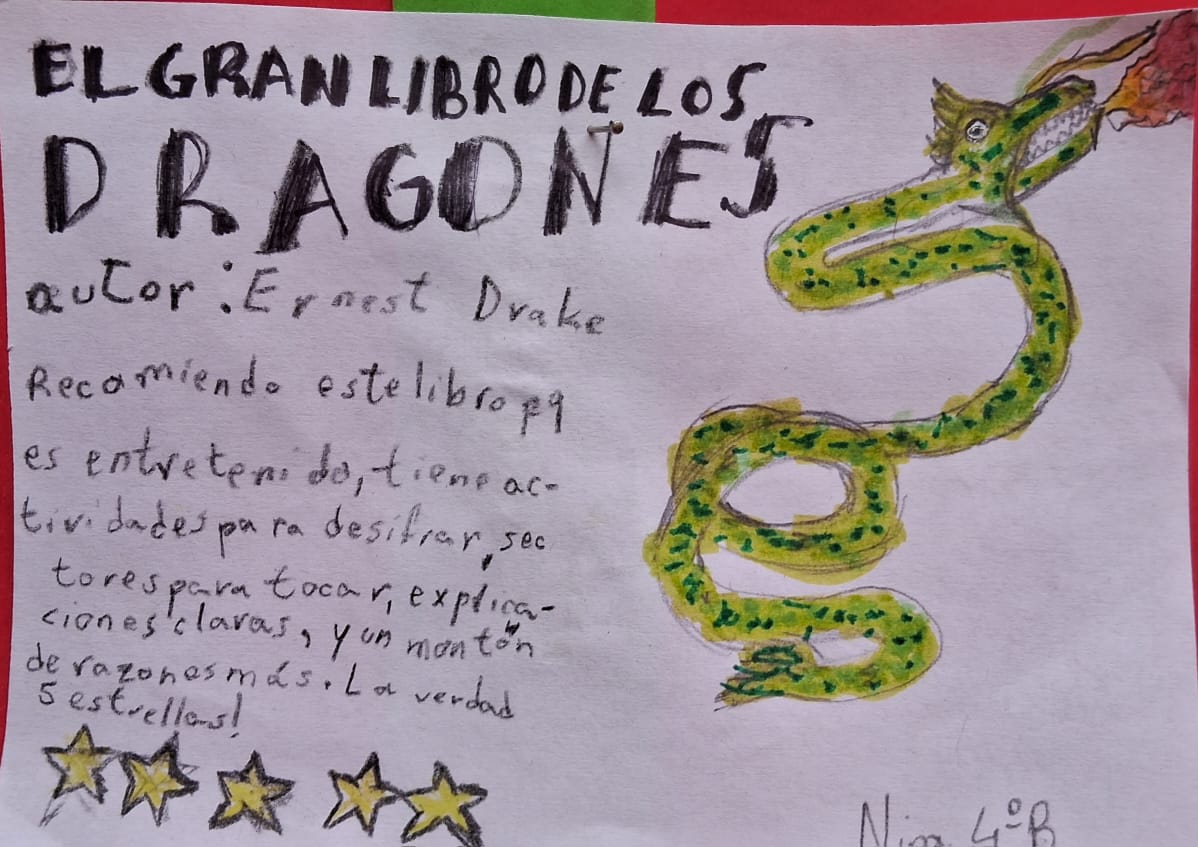 EL GRAN LIBRO DE LOS
DRAGONES
autor: Ernest Drake
Recomiendo este libro pq
es entretenido, tiene ac-
tividades para desifrar, sec
tores para tocar, explica-
ciones claras, y un montón
de razones más. La verdad
5 estrellas!
4ºB